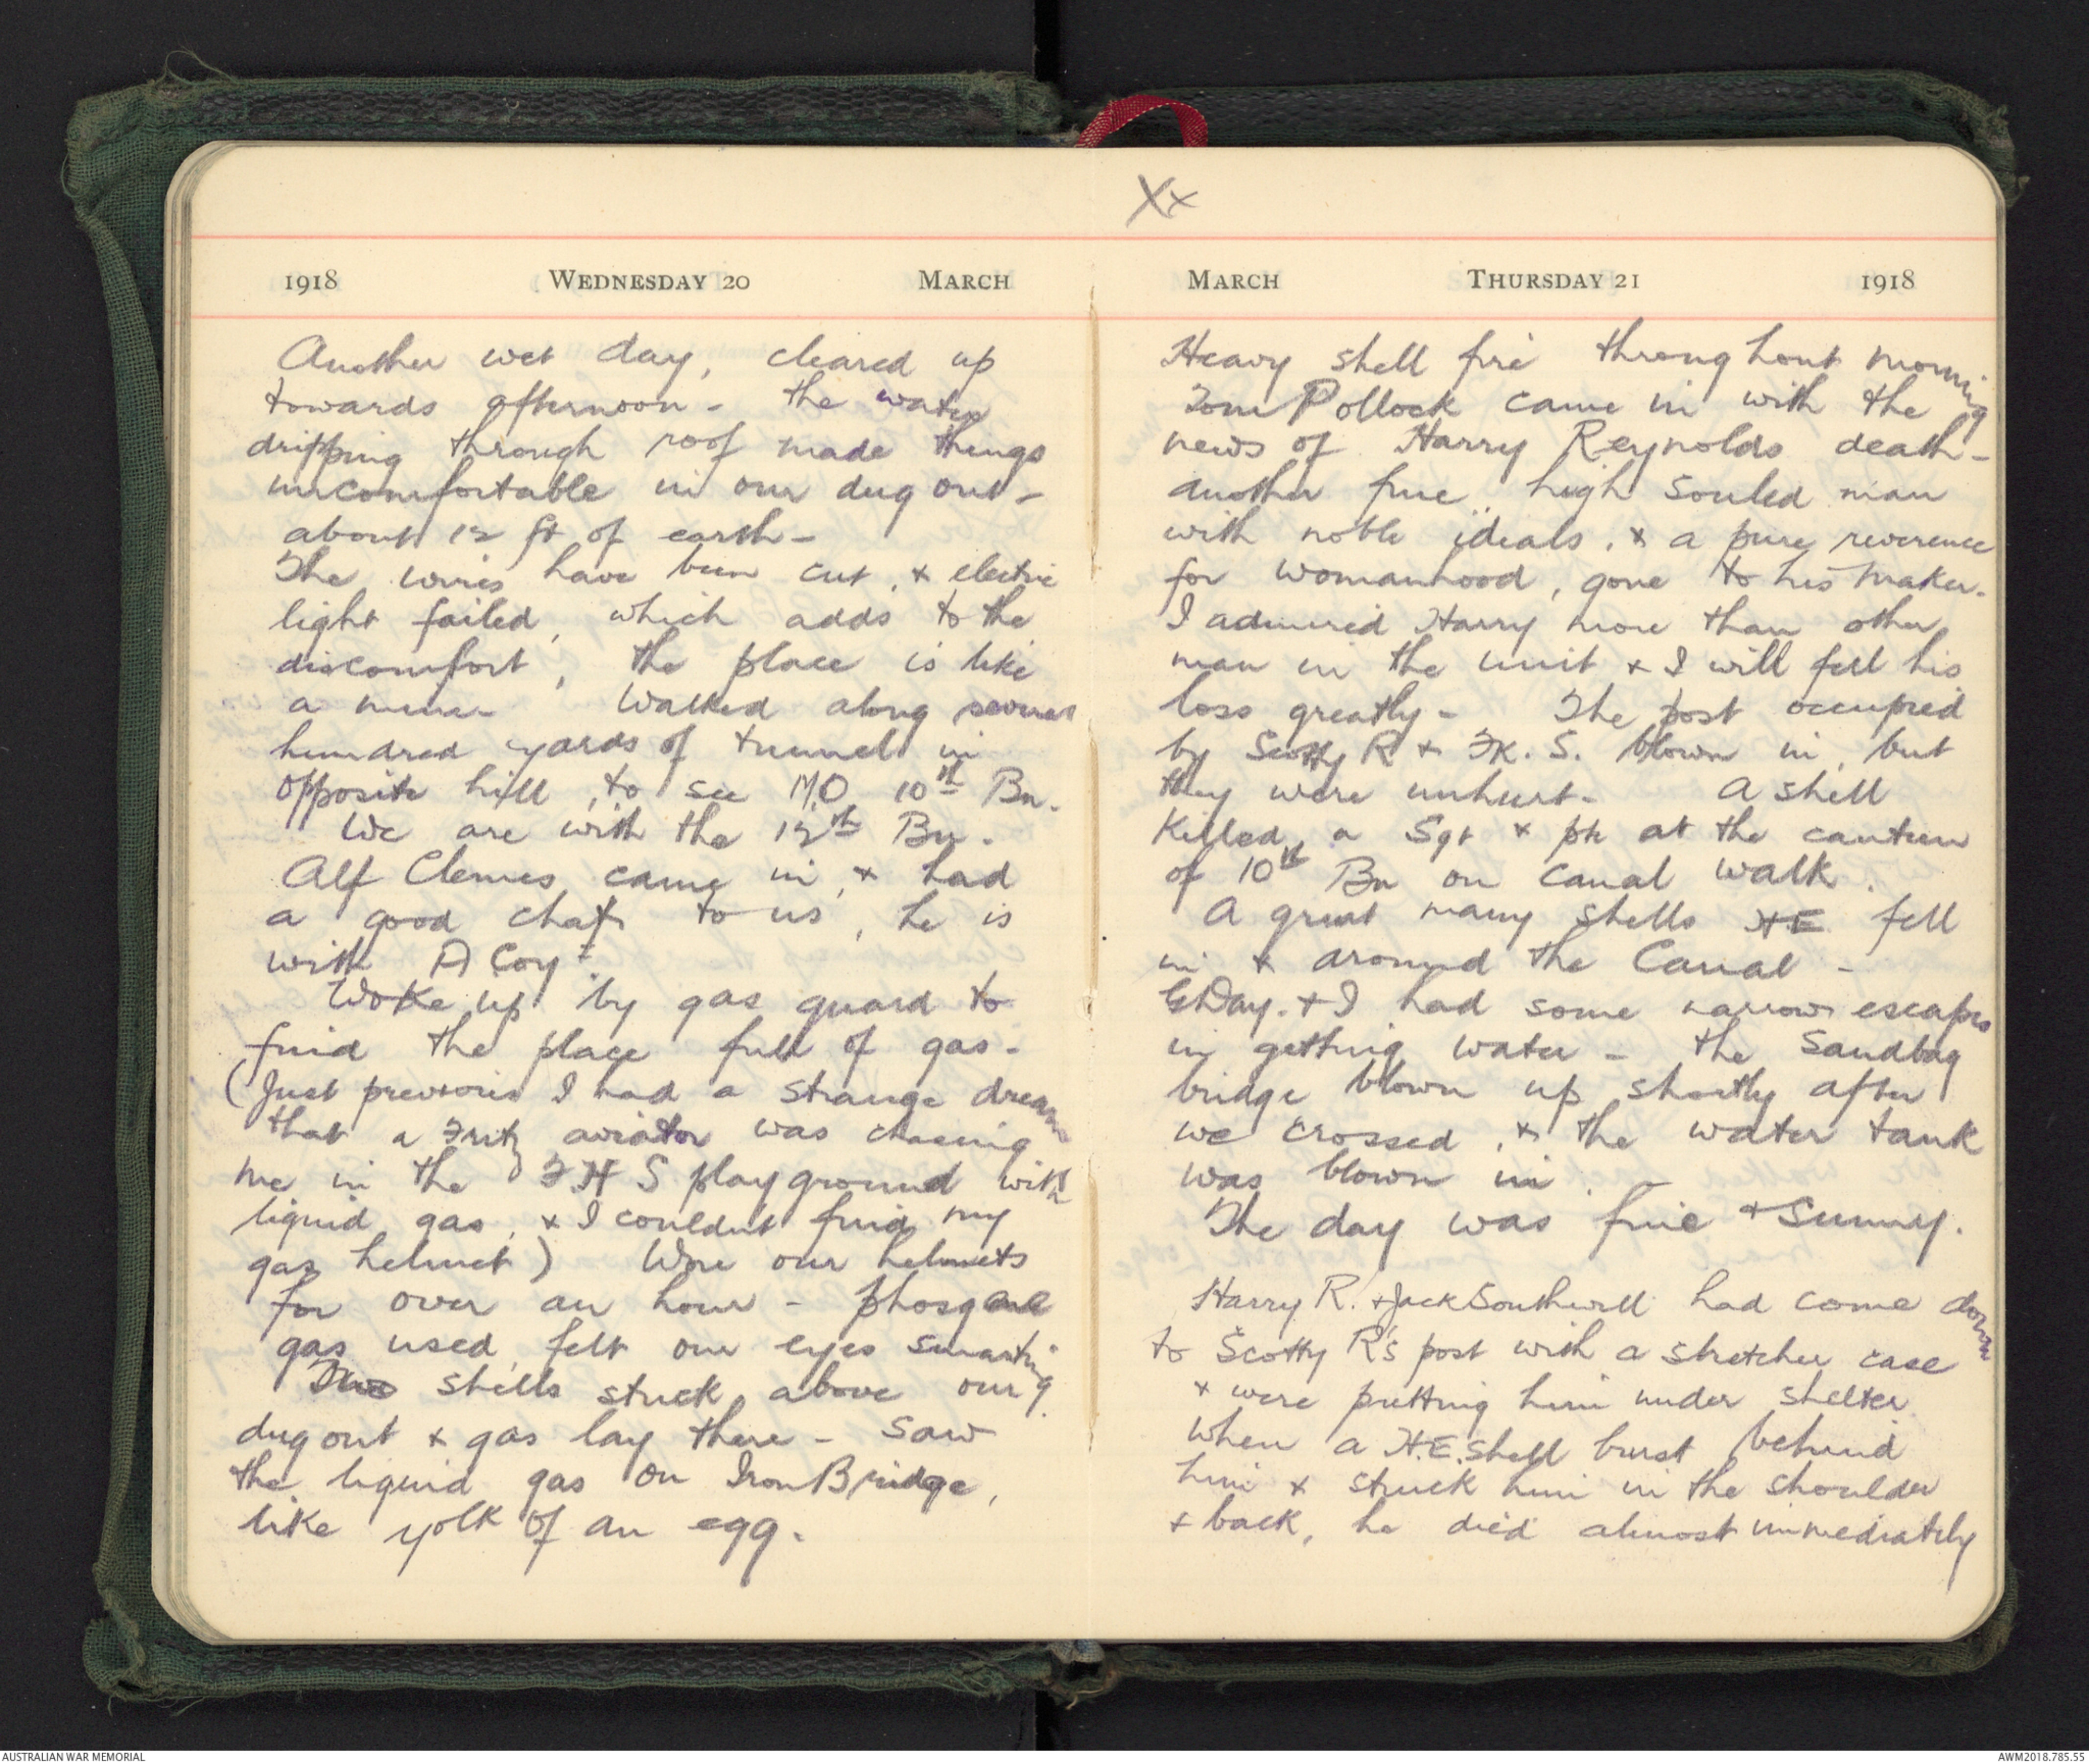 1918 WEDNESDAY 20 MARCH
Another wet day, cleared up
towards afternoon - the water
dripping through roof made things
uncomfortable in our dug out -
about 12 ft of earth -
The wires have been cut, & electric
light failed, which adds to the
discomfort, the place is like
a mine - Walked along several
hundred yards of tunnel in
opposite hill, to see M.O 10th Bn.
We are with the 12th Bn.
Alf Clemes came in, & had
a good chat to us, he is
with A Coy -
Woke up by gas guard to
find the place full of gas -
(Just previous I had a strange dream
that a Fritz aviator was chasing
me in the F.H S playground with
liquid gas, & I couldnt find my
gas helmet) Wore our helmets
for over an hour - phosgene
gas used, felt our eyes smarting
Two shells stuck above our
dug out & gas lay there - saw
the liquid gas on Iron Bridge,
like yolk of an egg.
Xx
MARCH THURSDAY 21 1918
Heavy shell fire throughout morning
Tom Pollock came in with the
news of Harry Reynolds death -
another fine high souled man
with noble ideals, & a pure reverence
for womanhood, gone to his maker.
I admired Harry more than other
man in the unit & I will fell his
loss greatly - The post occupied
by Scotty R & Fk. S. blown in, but
they were unhurt - A shell
killed a Sgt & pte at the canteen
of 10th Bn on Canal Walk.
A great many shells HE fell
in & around the Canal -
GDay. & I had some narrow escapes
in getting water - the Sandbag
bridge blown up shortly after
we crossed, & the water tank
was blown in.
The day was fine & Sunny.
Harry R. & Jack Southwell had come down
to Scotty R's post with a stretcher case
& were putting him under shelter
when a H.E. shell burst behind
him & struck him in the shoulder
& back, he died almost immediately
AUSTRALIAN WAR MEMORIAL
AWM2018.785.55